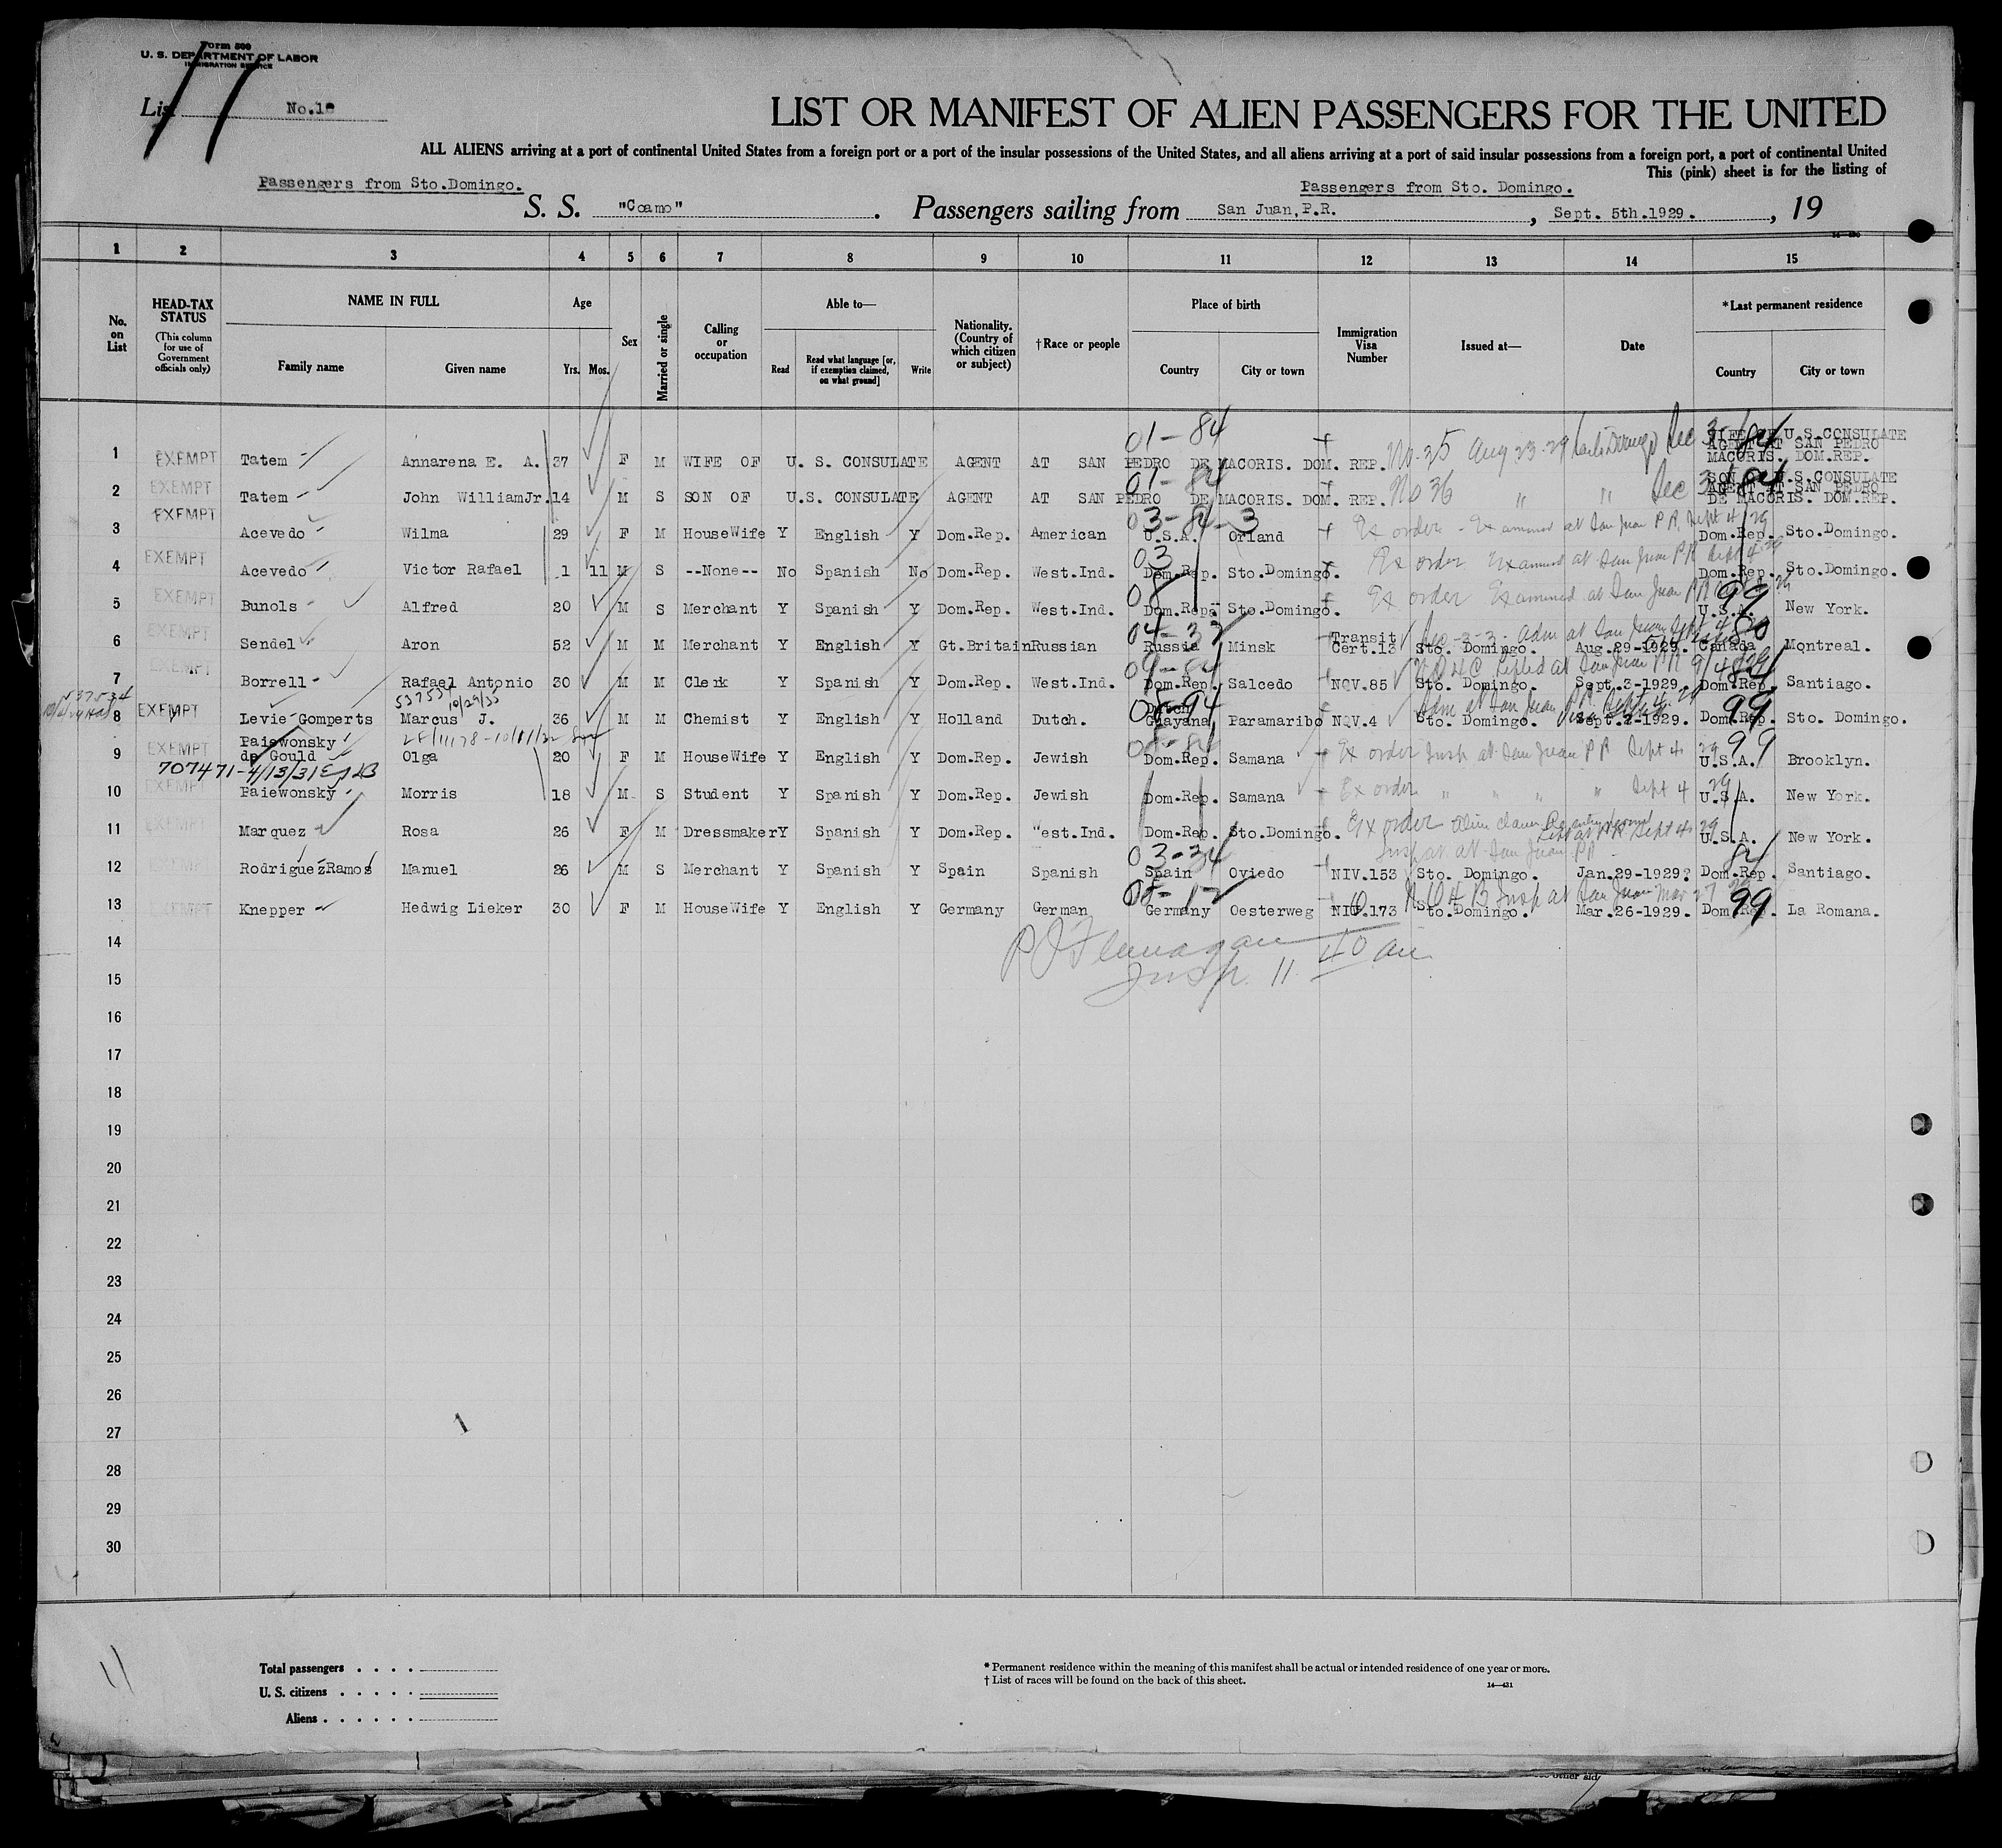 Form 500
U. S. DEPARTMENT OF LABOR
IMMIGRATION SERVICE
11
List No.1
LIST OR MANIFEST OF ALIEN PASSENGERS FOR THE UNITED
ALL ALIENS arriving at a port of continental United States from a foreign port or a port of the insular possessions of the United States, and all aliens arriving at a port of said insular possessions from a foreign port, a port of continental United
This (pink) sheet is for the listing of
Passengers from Sto.Domingo. Passengers from Sto. Domingo.
S. S. "Coamo". Passengers sailing from San Juan,P.R., Sept. 5th.1929., 19
1 2 3 4 5 6 7 8 9 10 11 12 13 14 15
No. on List
HEAD-TAX STATUS (This column for use of Government officials only)
NAME IN FULL Family name Given name
Age Yrs. Mos.
Sex
Married or single
Calling or occupation
Able to— Read Read what language [or, if exemption claimed, on what ground] Write
Nationality. (Country of which citizen or subject)
†Race or people
Place of birth Country City or town
Immigration Visa Number
Issued at—
Date
*Last permanent residence Country City or town
01-84
1 EXEMPT Tatem Annarena E. A. 37 F M WIFE OF U. S. CONSULATE AGENT AT SAN PEDRO DE MACORIS. DOM. REP. No. 25 Aug 23-29 Sec 3- WIFE OF U.S.CONSULATE AGENT AT SAN PEDRO MACORIS. DOM.REP.
01-84
2 EXEMPT Tatem John WilliamJr. 14 M S SON OF U.S. CONSULATE AGENT AT SAN PEDRO DE MACORIS. DOM. REP. No 36 " " Sec 3 SON OF U.S.CONSULATE AGENT AT SAN PEDRO DE MACORIS. DOM.REP.
03-84-3
3 EXEMPT Acevedo Wilma 29 F M HouseWife Y English Y Dom.Rep. American U.S.A. Orland Ex order - Examined at San Juan P R Sept 4 29 Dom.Rep. Sto.Domingo.
03
4 EXEMPT Acevedo Victor Rafael 1 11 M S --None-- No Spanish No Dom.Rep. West.Ind. Dom.Rep. Sto.Domingo. Ex order Examined at San Juan P R Sept 4 29 Dom.Rep. Sto.Domingo.
5 EXEMPT Bunols Alfred 20 M S Merchant Y Spanish Y Dom.Rep. West.Ind. Dom.Rep. Sto.Domingo. Ex order Examined at San Juan P R 99 U.S.A. New York.
6 EXEMPT Sendel Aron 52 M M Merchant Y English Y Gt.Britain Russian Russia Minsk Transit Cert.13 Sto. Domingo. Aug.29-1929. Canada Montreal.
7 EXEMPT Borrell Rafael Antonio 30 M M Clerk Y Spanish Y Dom.Rep. West.Ind. Dom.Rep. Salcedo NQV.85 Sto. Domingo. Sept.3-1929. Dom.Rep. Santiago.
537534 10/29/35
8 EXEMPT Levie-Gomperts Marcus J. 36 M M Chemist Y English Y Holland Dutch. Dutch Guayana Paramaribo NQV.4 Sto. Domingo. Sept.2-1929. 99 Dom.Rep. Sto. Domingo.
9 EXEMPT Paiewonsky de Gould Olga 20 F M HouseWife Y English Y Dom.Rep. Jewish Dom.Rep. Samana Ex order Insp at San Juan P R Sept 4 29 99 U.S.A. Brooklyn.
707471-4/13/31
10 EXEMPT Paiewonsky Morris 18 M S Student Y Spanish Y Dom.Rep. Jewish Dom.Rep. Samana Ex order " " " " Sept 4 29 U.S.A. New York.
11 EXEMPT Marquez Rosa 26 F M Dressmaker Y Spanish Y Dom.Rep. West.Ind. Dom.Rep. Sto.Domingo. Ex order Sept 4 29 U.S.A. New York.
Insp at San Juan P R
03-34
12 Rodriguez Ramos Manuel 26 M S Merchant Y Spanish Y Spain Spanish Spain Oviedo NIV.153 Sto. Domingo. Jan.29-1929? Dom.Rep. Santiago.
13 EXEMPT Knepper Hedwig Lieker 30 F M HouseWife Y English Y Germany German Germany Oesterweg 173 Sto.Domingo. Mar.26-1929. 99 Dom.Rep. La Romana.
14
P J Flanagan
Insp. 11 40 am
15
16
17
18
19
20
21
22
23
24
25
26
27
28
29
30
11
Total passengers
U. S. citizens
Aliens
* Permanent residence within the meaning of this manifest shall be actual or intended residence of one year or more.
† List of races will be found on the back of this sheet.
14—431